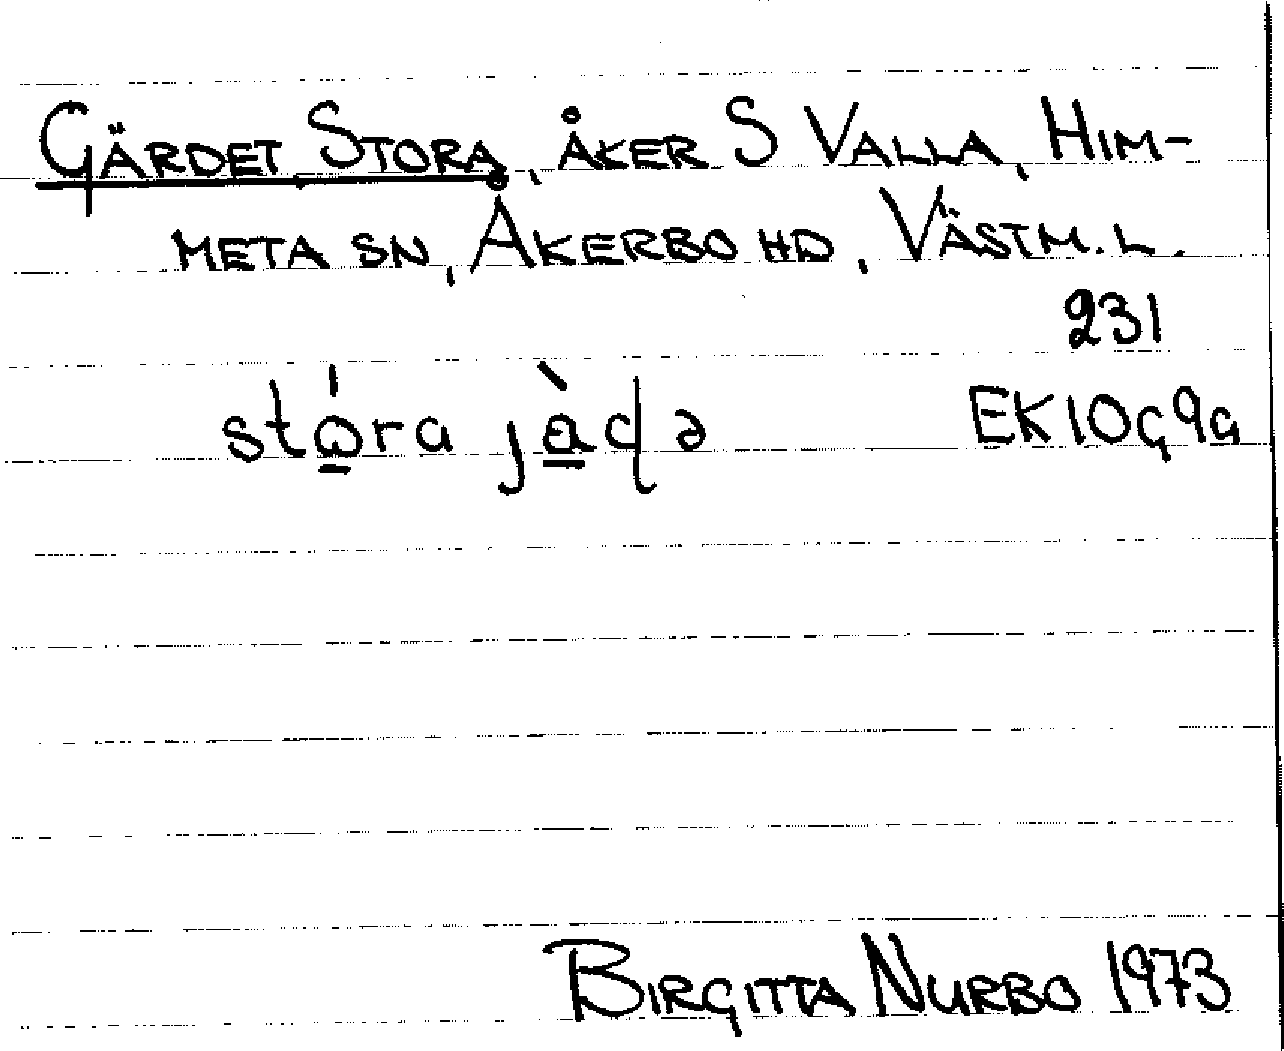 GÄRDET STORA, ÅKER S VALLA, HIM-
META SN, ÅKERBO HD, VÄSTM. L.
231
stώ̲ra ȷà̲ɖə EK10G9G
BIRGITTA NURBO 1973